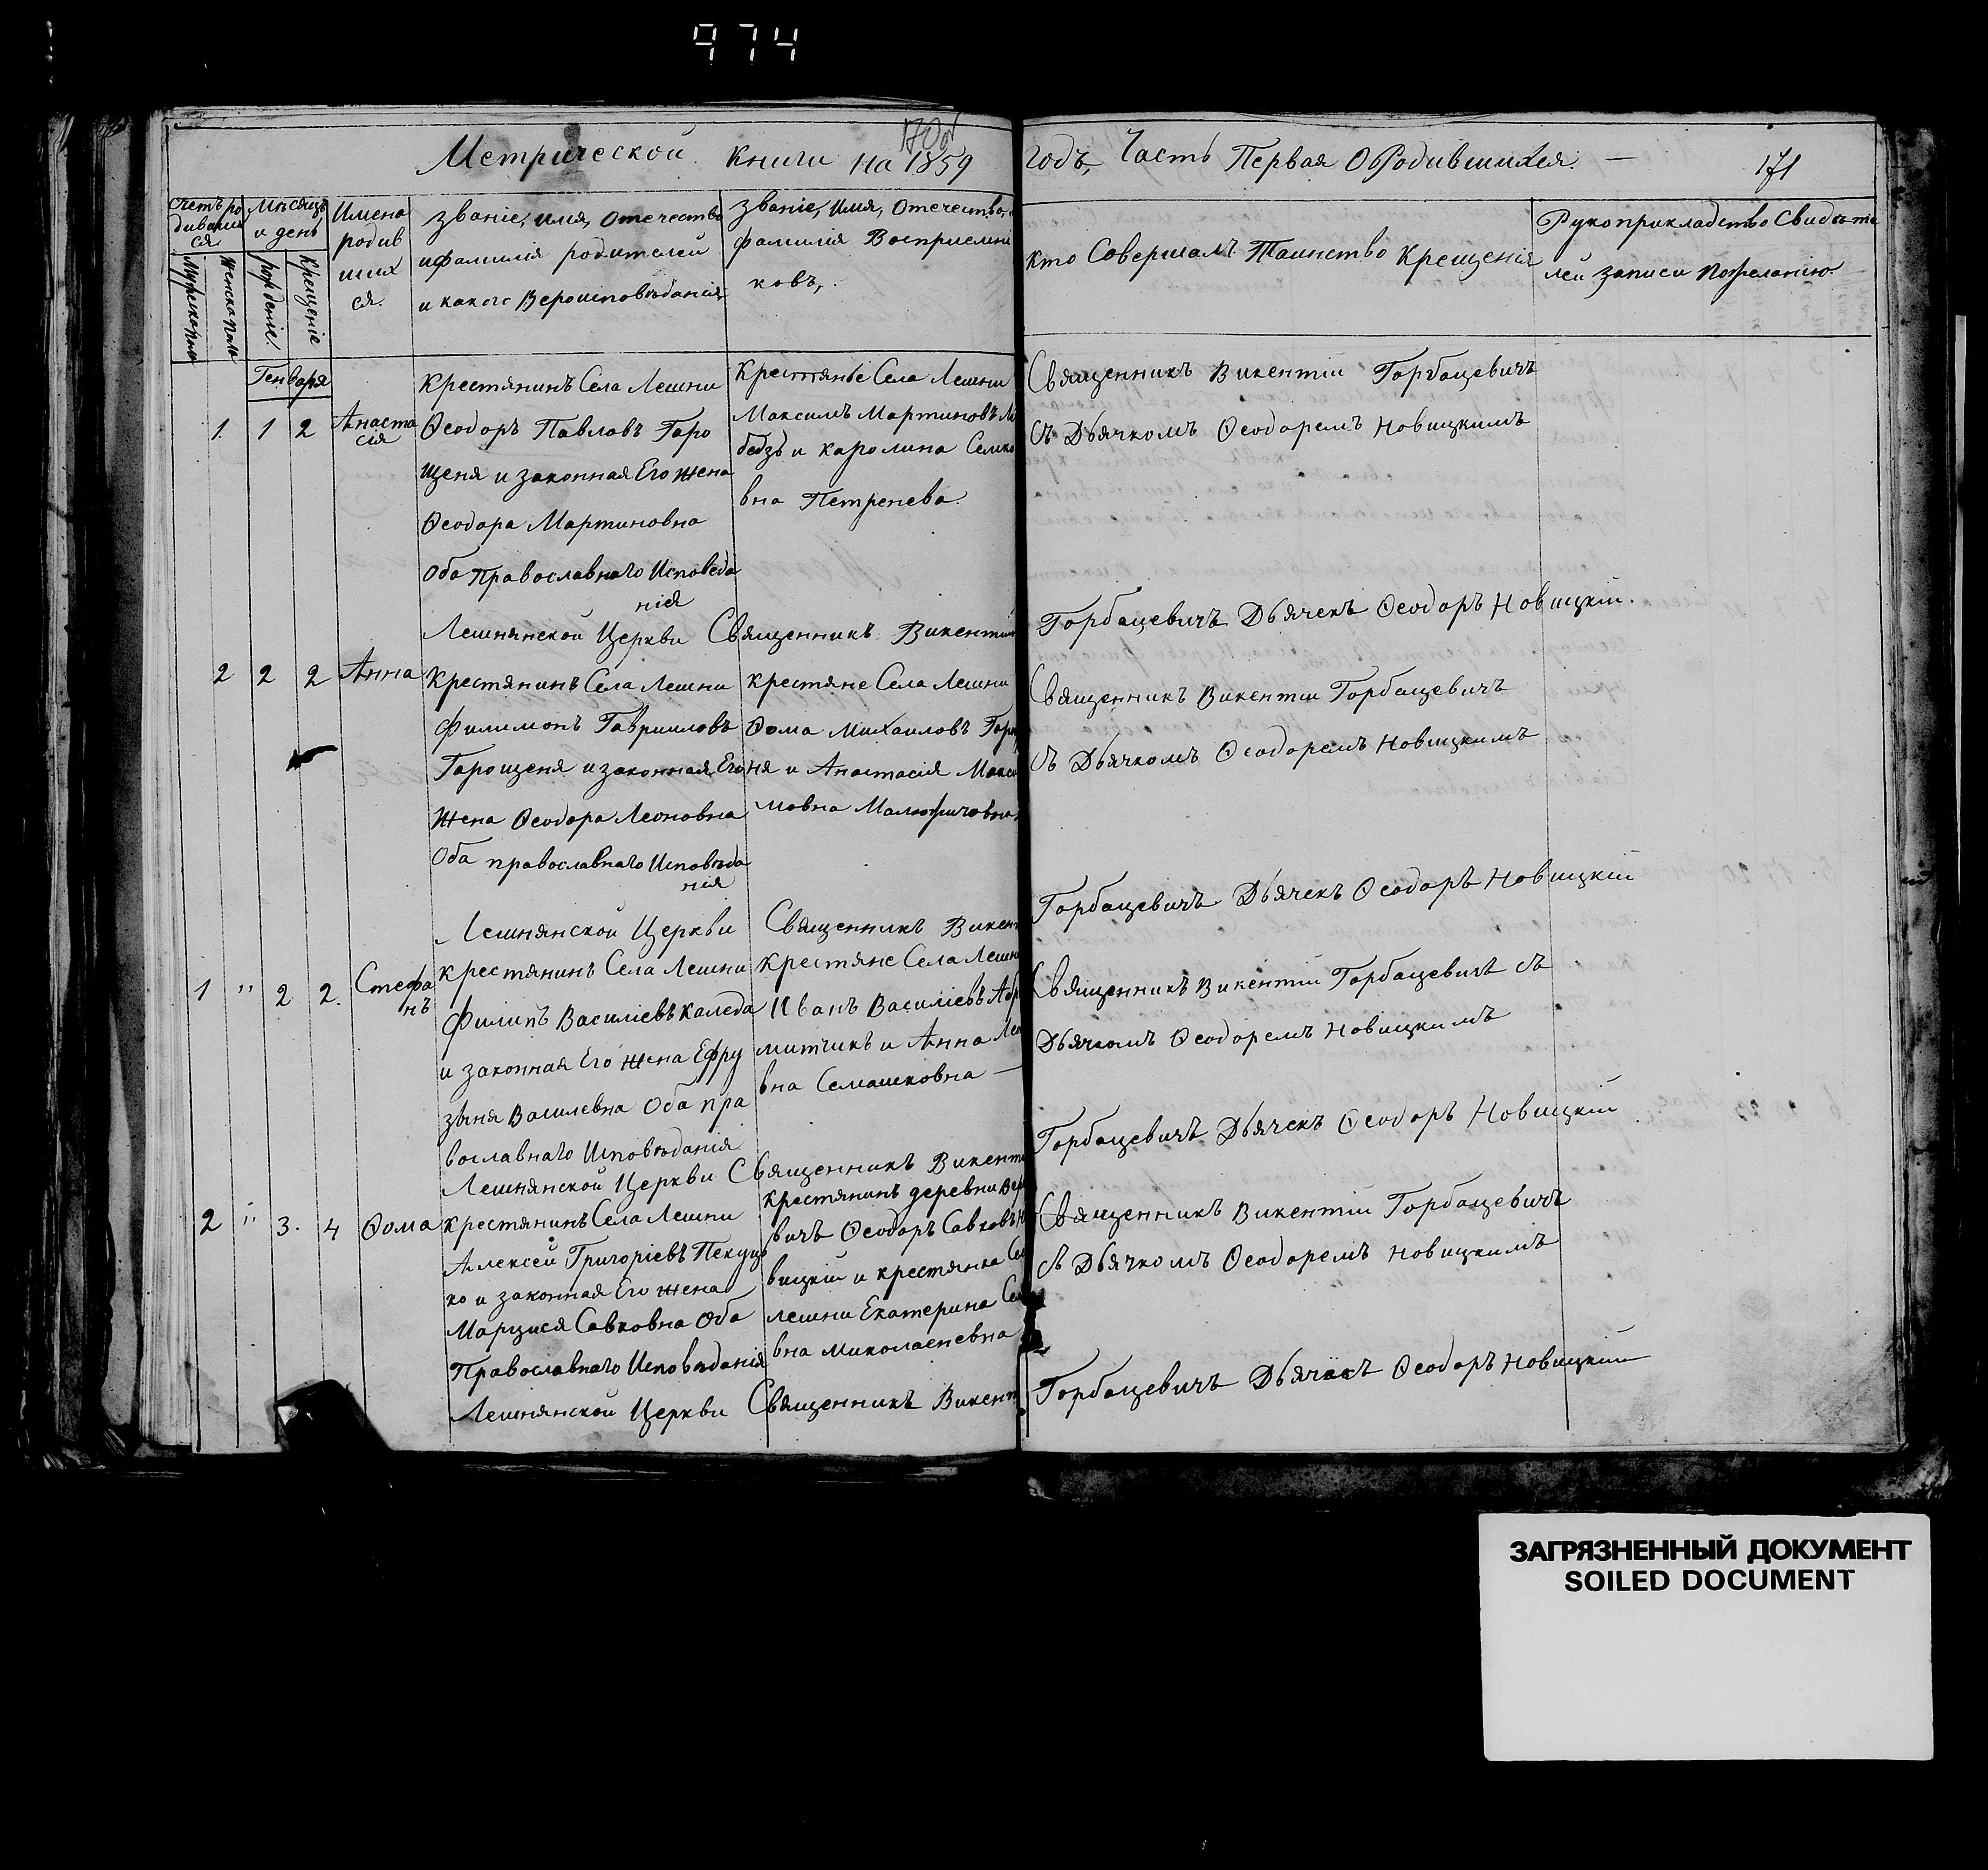 974
170об
Метрической книги на 1859
годъ, Часть Первая О Родившихся. —
171
Счетъ ро
дивших
ся
Мѣсяцъ
и день
Имена
родив
ших
ся.
Званіе, имя, отечество
и фамилія родителей
и какого Вероисповѣданія
Званіе, имя, отечество,
фамилія Восприемни
ковъ,
Мужеска пола
Женска пола
рожденіе.
Крещеніе
кто Совершалъ Таинство Крещенія
Рукоприкладство Свидѣте
лей записи по желанію
Генваря
1. 1 2
Анаста
сія
Крестянинъ Села Лешни
Ѳеодоръ Павловъ Горо
щеня и законная Его жена
Ѳеодора Мартиновна
Оба Православнаго Исповеда
нія
Крестянье Села Лешни
Максимъ Мартиновъ Ле
бедзь и Каролина Семко
вна Петренева.
Священникъ Викентій Горбацевичъ
Съ Дьячкомъ Ѳеодоремъ Новицкимъ
Лешнянской Церкви Священникъ Викентій
Горбацевичъ Дьячекъ Ѳеодоръ Новицкій.
2 2 2
Анна
Крестянинъ Села Лешни
Филимонъ Гавриловъ
Горощеня и законная Его
жена Ѳеодора Леоновна
Оба православнаго Исповѣда
нія
Крестяне Села Лешни
Ѳома Михаиловъ Горо
ня и Анастасія Макси
мовна
Священникъ Викентіи Горбацевичъ
съ Дьячкомъ Ѳеодоремъ Новицкимъ
Лешнянской Церкви Священникъ Викен
Горбацевичъ Дьячекъ Ѳеодоръ Новицкій
1 " 2 2.
Стефа
нъ
Крестянинъ Села Лешни
Филипъ Василіевъ Каледа
и законная Его жена Ефру
зына Василевна Оба пра
вославнаго Исповѣданія
Крестяне Села Лешни
Иванъ Василіевъ
митчикъ и Анна
вна Семашковна —
Священникъ Викентій Горбацевичъ съ
Дьячкомъ Ѳеодоремъ Новицкимъ
Лешнянской Церкви Священникъ Викенти
Горбацевичъ Дьячекъ Ѳеодоръ Новицкій
2 " 3. 4
Ѳома
Крестянинъ Села Лешни
Алексей Григоріевъ Пекуць
ко и законная Его жена
Марцися Савковна Оба
Православнаго Исповѣданія
крестянинъ деревни
вичъ Ѳеодоръ Савковъ
вицкій и крестянка
лешни Екатерина
вна Миколаеневна
Священникъ Викентій Горбацевичъ
съ Дьячкомъ Ѳеодоремъ Новицкимъ
Лешнянской Церкви Священникъ Викент
Горбацевичъ Дьячекъ Ѳеодоръ Новицкій
ЗАГРЯЗНЕННЫЙ ДОКУМЕНТ
SOILED DOCUMENT